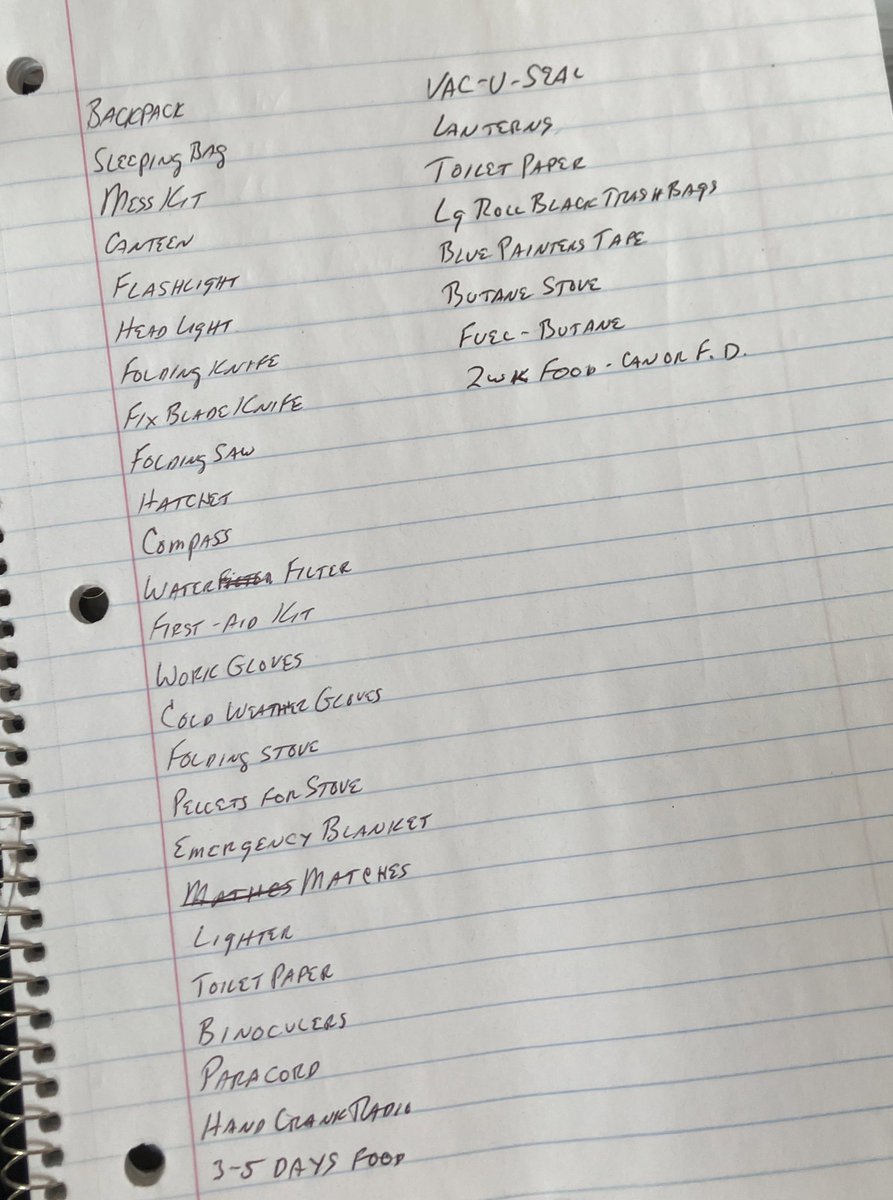 BACKPACK
SLEEPING BAG
MESS KIT
CANTEEN
FLASHLIGHT
HEAD LIGHT
FOLDING KNIFE
FIX BLADE KNIFE
FOLDING SAW
HATCHET
COMPASS
WATER FILTER
FIRST-AID KIT
WORK GLOVES
COLD WEATHER GLOVES
FOLDING STOVE
PELLETS FOR STOVE
EMERGENCY BLANKET
MATHES MATCHES
LIGHTER
TOILET PAPER
BINOCULERS
PARACORD
HAND CRANK RADIO
3-5 DAYS FOOD
VAC-U-SEAL
LANTERNS
TOILET PAPER
Lg ROLL BLACK TRASH BAGS
BLUE PAINTERS TAPE
BUTANE STOVE
FUEL-BUTANE
2WK FOOD-CAN OR F.D.